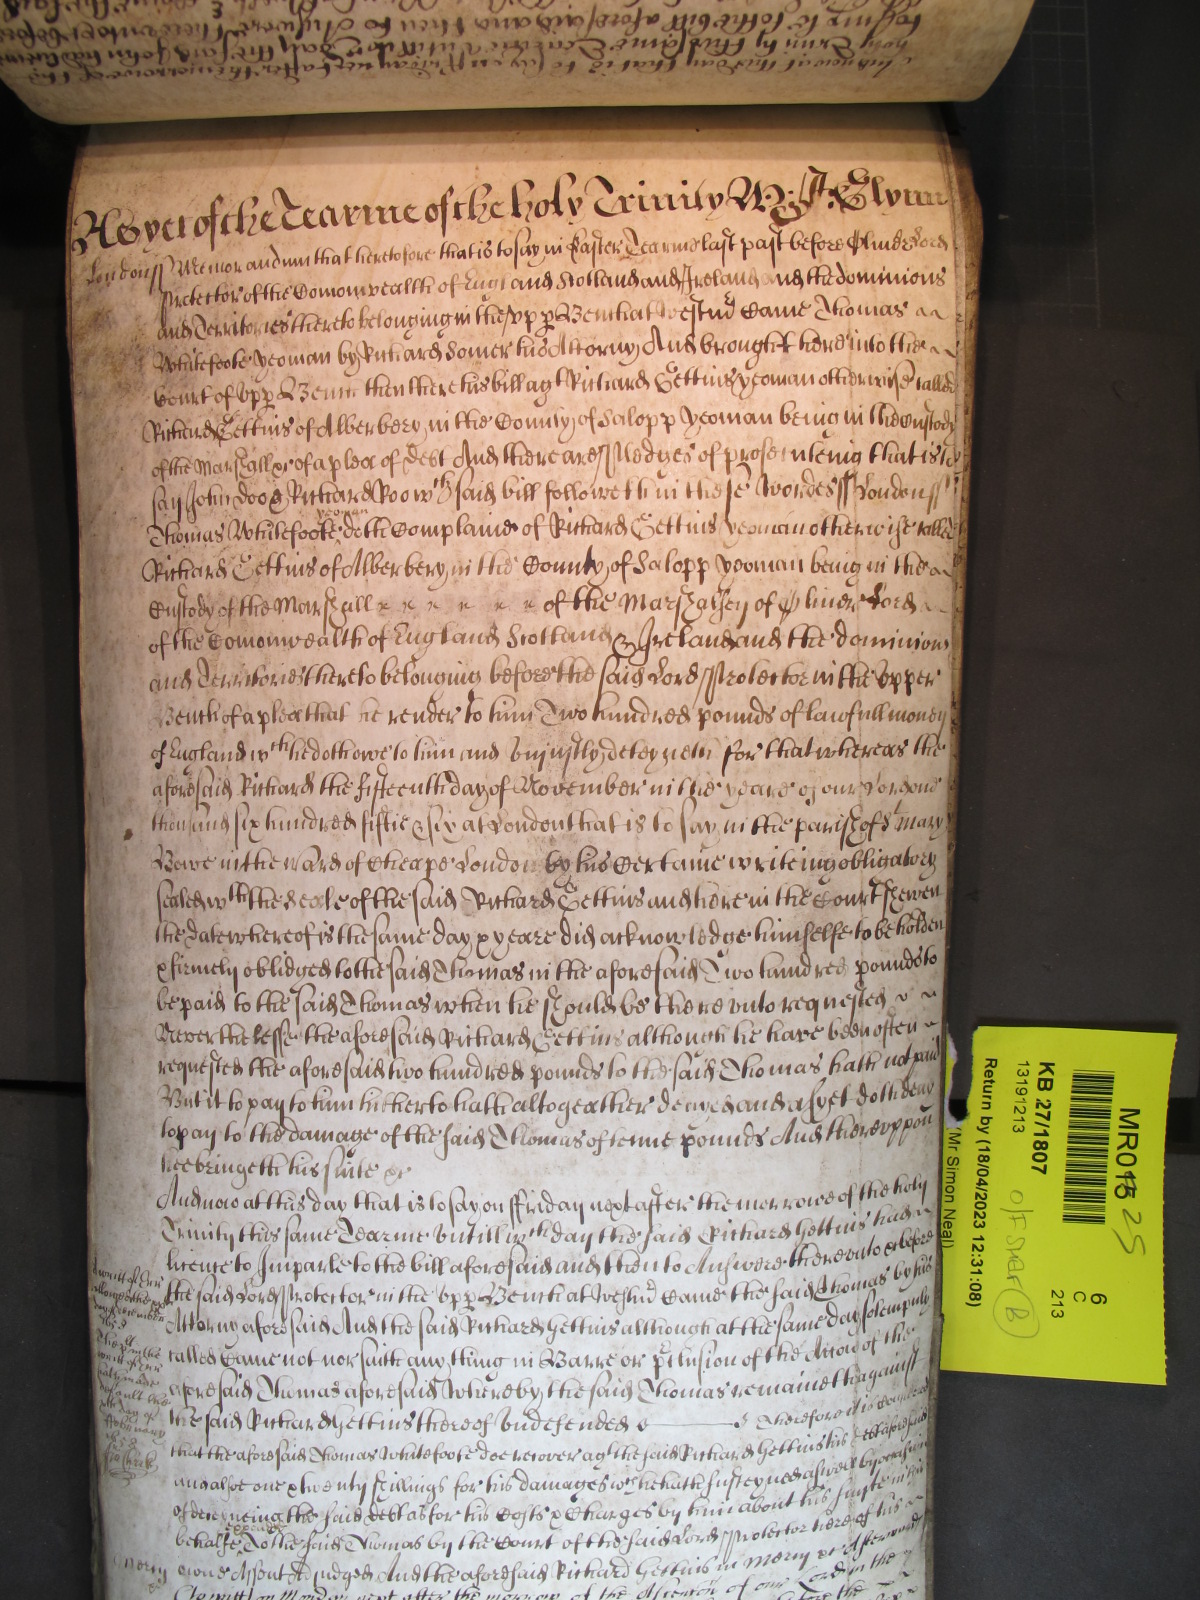 As yet of the Tearme of the holy Trinity Wit: J: Glynn
Londonss Memorandum that heretofore that is to say in Easter Tearme last past before Oliver Lord
Protector of the Comonwealth of England Scotland and Ireland and the dominions
and Territories thereto belonging in the upp Bench at Westmr Came Thomas
Whitefoote yeoman by Richard Somer his Attorny And brought here into the
Court of upp Bench then there his bill agt Richard Gettins yeoman otherwise called
Richard Gettins of Alberbery in the County of Salopp yeoman being in the Custody
of the Marshall &c of a plea of debt And there are Pledges of prosecuteing that is to
say John Doo & Richard Roo wch said bill followeth in these wordes ss Londonss
yeoman
Thomas Whitefoote doth Complaine of Richard Gettins yeoman otherwise called
Richard Gettins of Alberbery in the County of Salopp yeoman being in the
Custody of the Marshall of the Marshalsey of Oliver Lord
of the Comonwealth of England Scotland & Ireland and the dominions
and Territories thereto belonging before the said Lord Protector in the Upper
Bench of a plea that he render to him Two hundred pounds of lawfull money
of England wch he doth owe to him and Uniustly deteyneth for that whereas the
aforesaid Richard the fifteenth day of November in the yeare of our Lord one
thousand six hundred fiftie & six at London that is to say in the parish of St Mary
Bowe in the ward of Cheape London by his Certaine writeing obligatory
sealed wth the seale of the said Richard Gettins and here in the Court shewen
the date whereof is the same day & yeare did acknowledge himselfe to be holden
& firmely obliged to the said Thomas in the aforesaid Two hundred pounds to
be paid to the said Thomas when he should be thereunto requested
Neverthelesse the aforesaid Richard Gettins although he have been often
requested the aforesaid two hundred pounds to the said Thomas hath not paid
But it to pay to him hitherto hath altogeather denyed and as yet doth deny
to pay to the damage of the said Thomas of tenne pounds And thereuppon
hee bringeth his suite &c
And now at this day that is to say on ffriday next after the morrowe of the holy
Trinity this same Tearme untill wch day the said Richard Gettins had
licence to Imparle to the bill aforesaid and then to Answere thereunto &c before
the said Lord Protector in the upp Bench at Westmr Came the said Thomas by his
Attorny aforesaid And the said Richard Gettins although at the same day solempnly
called Came not nor saith any thing in Barre or p'clusion of the Accon of the
aforesaid Thomas aforesaid Whereby the said Thomas remaineth against
the said Richard Gettins thereof Undefended Therefore it is considered
that the aforesaid Thomas Whitefoote doe recover agt the said Richard Gettins his debt aforesaid
and alsoe one & twenty shillings for his damages wch he hath susteyned aswell by occasion
of deteyneing the said debt as for his Costs & Charges by him about his suyte in this
expended
behalfe To the said Thomas by the Court of the said Lord Protector here of his
owne Assent Adjudged And the aforesaid Richard Gettins in mercy &c Afterwards
to witt on next after the morrow of the Ascention of our Lord in the
mercy
MR015 25
6
C
213
KB 27/1807
13191213
Return by (18/04/2023 12:31:08)
(Mr Simon Neal)
B